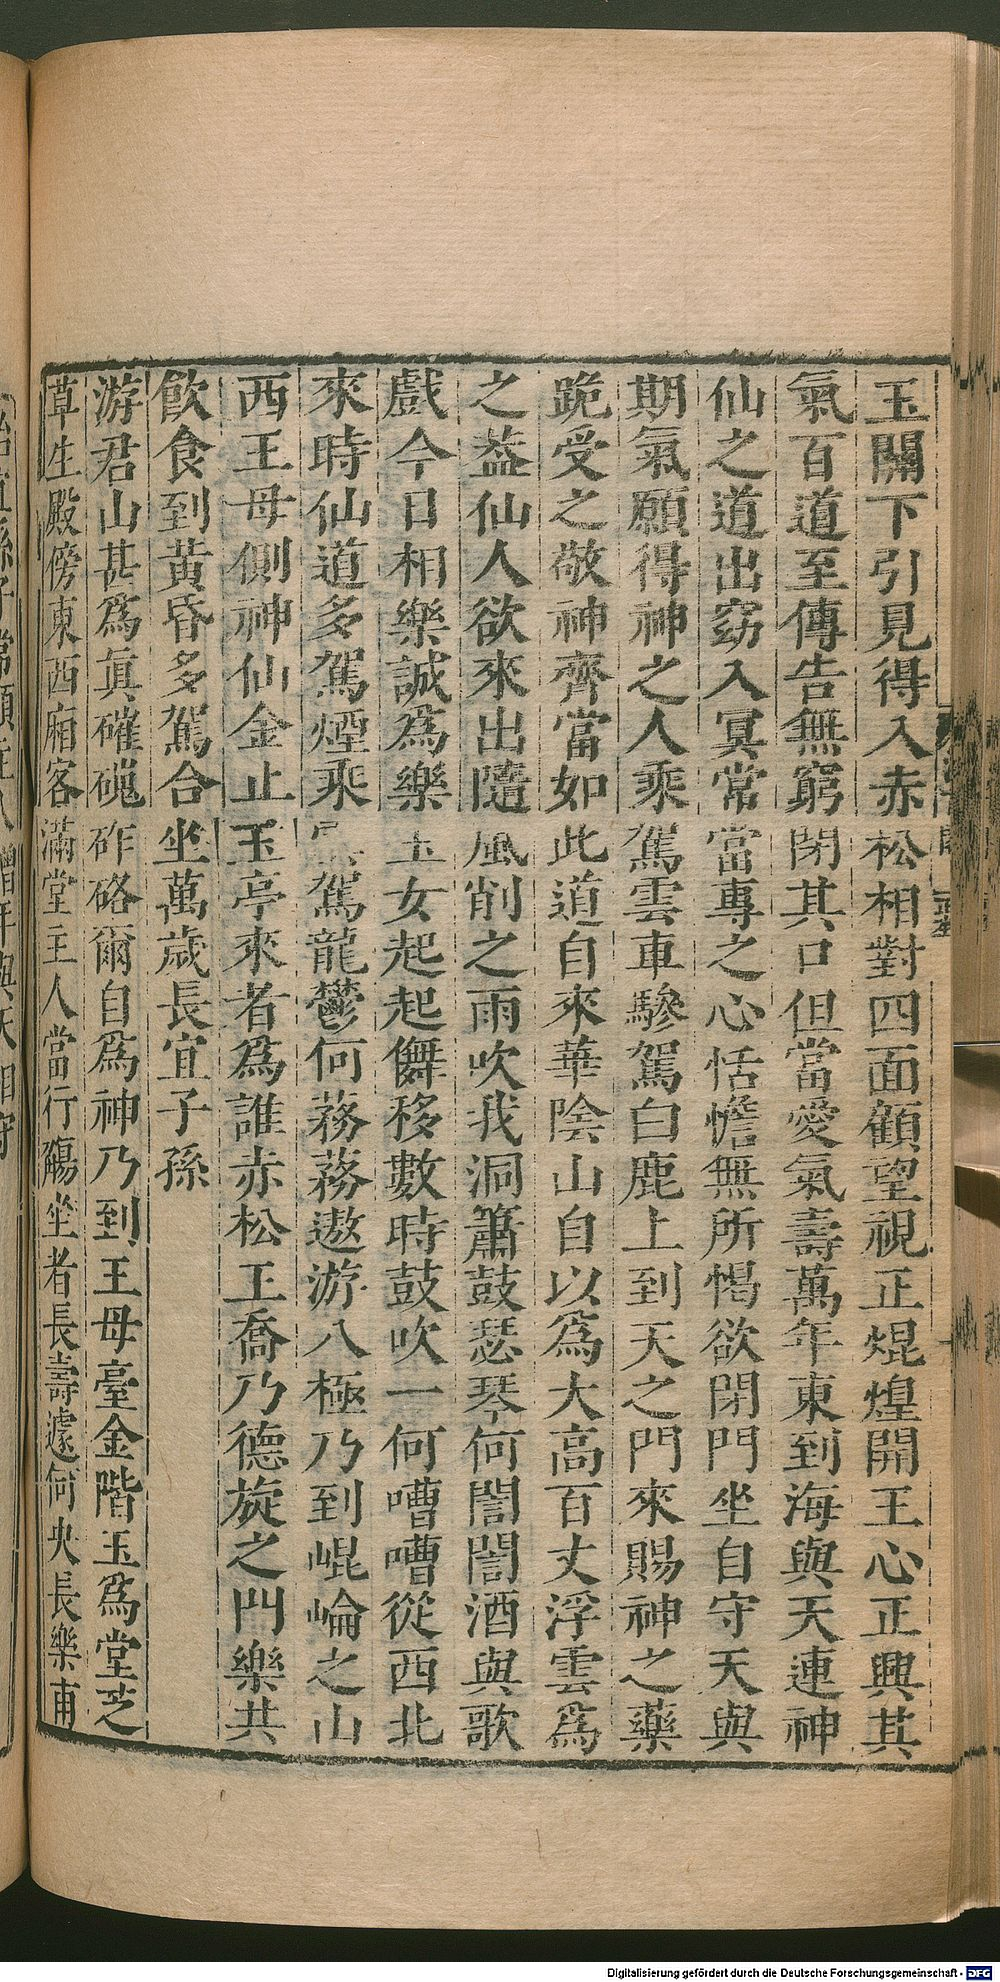 玉關下引見得入赤松相對四面顧望視正焜煌開王心正興其
氣百道至傳告無窮閉其口但當愛氣壽萬年東到海與天連神
仙之道出窈入冥常當專之心恬憺無所愒欲閉門坐自守天與
期氣願得神之人乘駕雲車驂駕白鹿上到天之門來賜神之藥
跪受之敬神齊當如此道自來華陰山自以為大高百丈浮雲為
之葢仙人欲來出隨風削之雨吹我洞簫鼓瑟琴何誾誾酒與歌
戲今日相樂誠為樂玉女起起儛移數時鼓吹一何嘈嘈從西北
來時仙道多駕煙乘雲駕龍鬱何蓩蓩遨游八極乃到崐崘之山
西王母側神仙金止玉亭來者為誰赤松王喬乃德旋之門樂共
飲食到黃昏多駕合坐萬歲長宜子孫
游君山甚為真磪磈砟硌爾自為神乃到王母臺金階玉為堂芝
草生殿傍東西廂客滿堂主人當行觴坐者長壽遽何央長樂甫
Digitalisierung gefördert durch die Deutsche Forschungsgemeinschaft - DFG